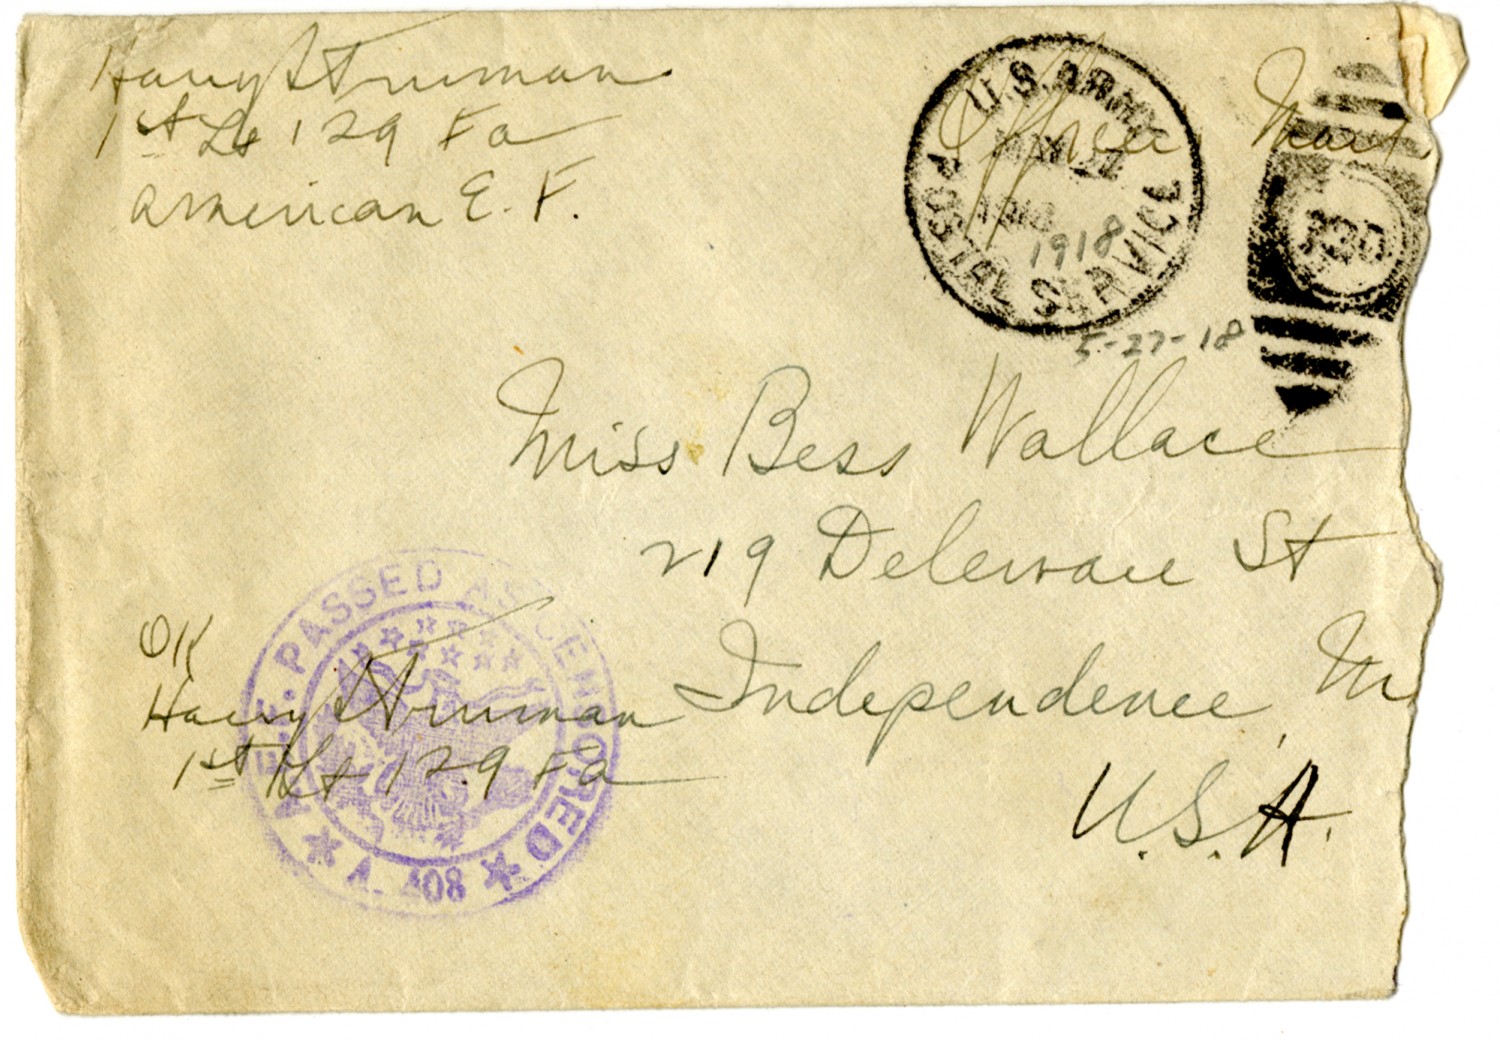 Harry S Truman
1st Lt 129 Fa
American E. F.
Officer Mail
U.S. ARMY
POSTAL SERVICE
MAY 27
1918
1918
5-27-18
Miss Bess Wallace
219 Deleware St
Independence, M
U.S.A.
OK
Harry S Truman
1st Lt 129 Fa
A.E.F. PASSED AS CENSORED
A. 408